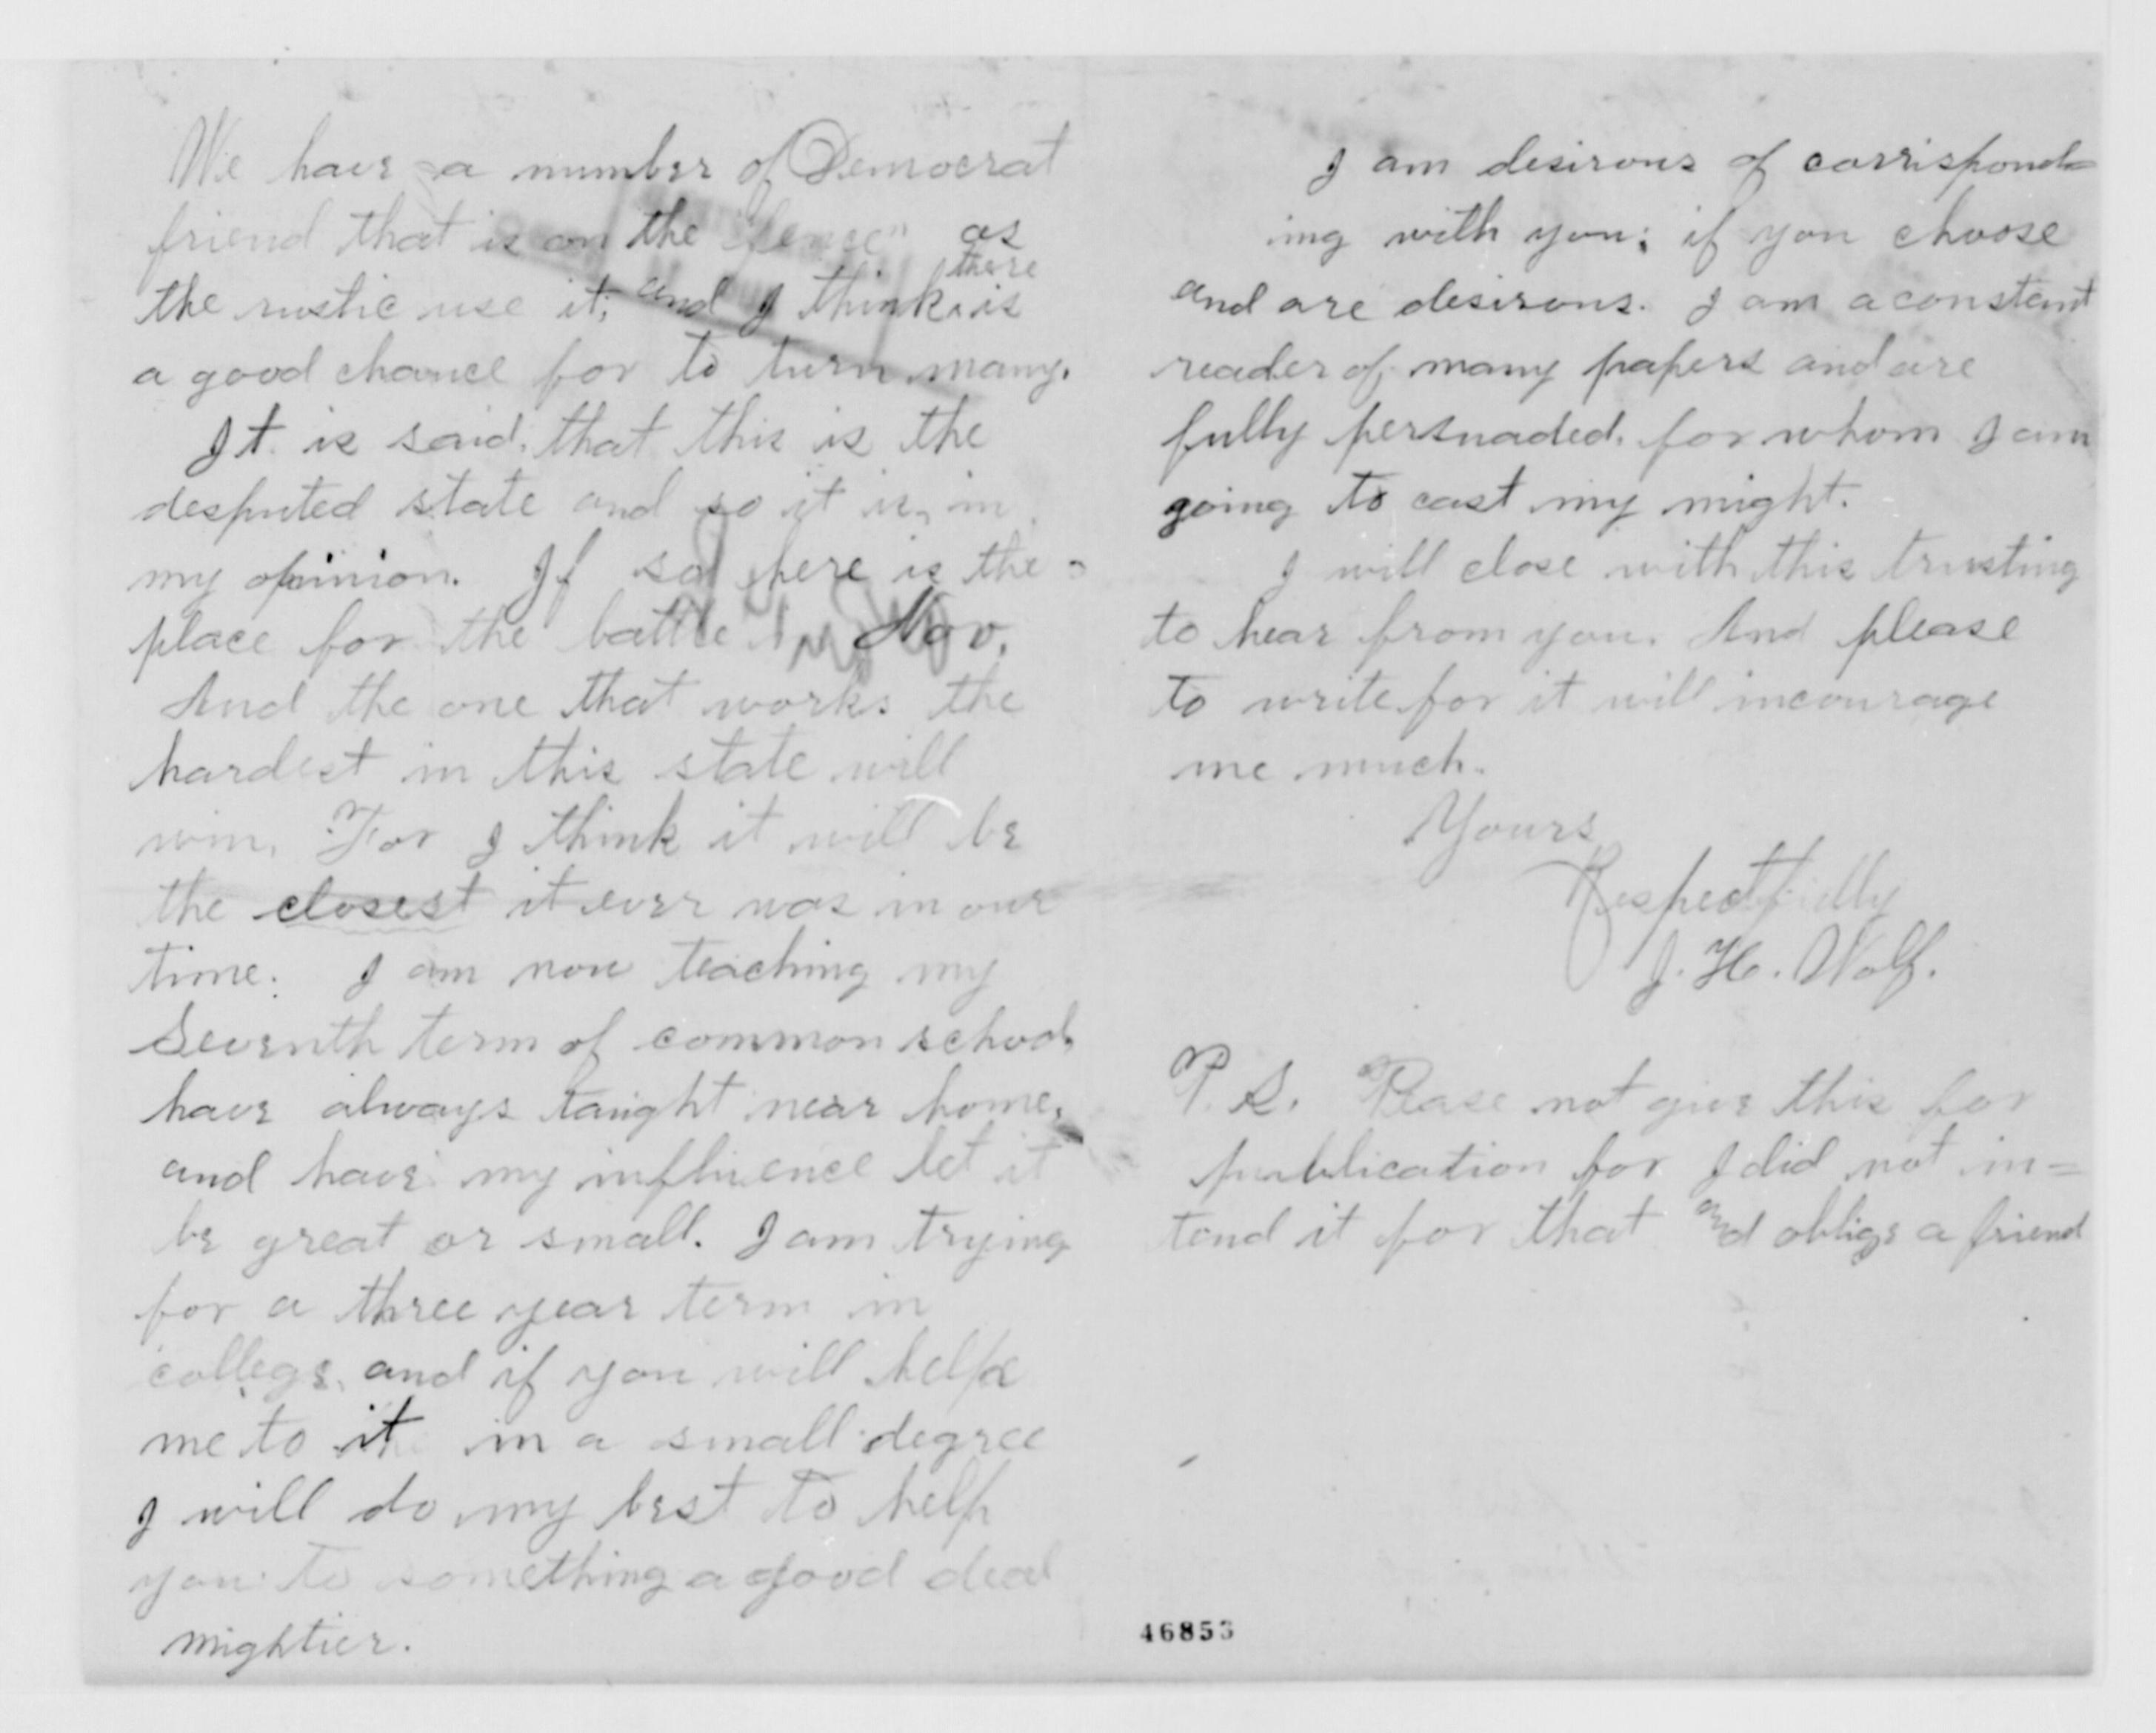 We have a number of Democrat
friend that is on the "fence" as
the rustic use it; and I think there is
a good chance for to turn many.
It is said, that this is the
desputed state and so it is, in
my opinion. If so, here is the
place for the battle in Nov.
And the one that works the
hardest in this state will
win. For I think it will be
the closest it ever was in our
time. I am now teaching my
Seventh term of common school,
have always taught near home,
and have my influence let it
be great or small. I am trying
for a three year term in
college, and if you will help
me to it in a small degree
I will do my best to help
you to something a good deal
mightier.
I am desirous of correspond-
ing with you; if you choose
and are desirous. I am a constant
reader of many papers and are
fully persuaded, for whom I am
going to cast my might.
I will close with this trusting
to hear from you. And please
to write for it will incourage
me much.
Yours
Respectfully
J. H. Wolf.
P.S. Please not give this for
publication for I did not in=
tend it for that and oblige a friend
46853